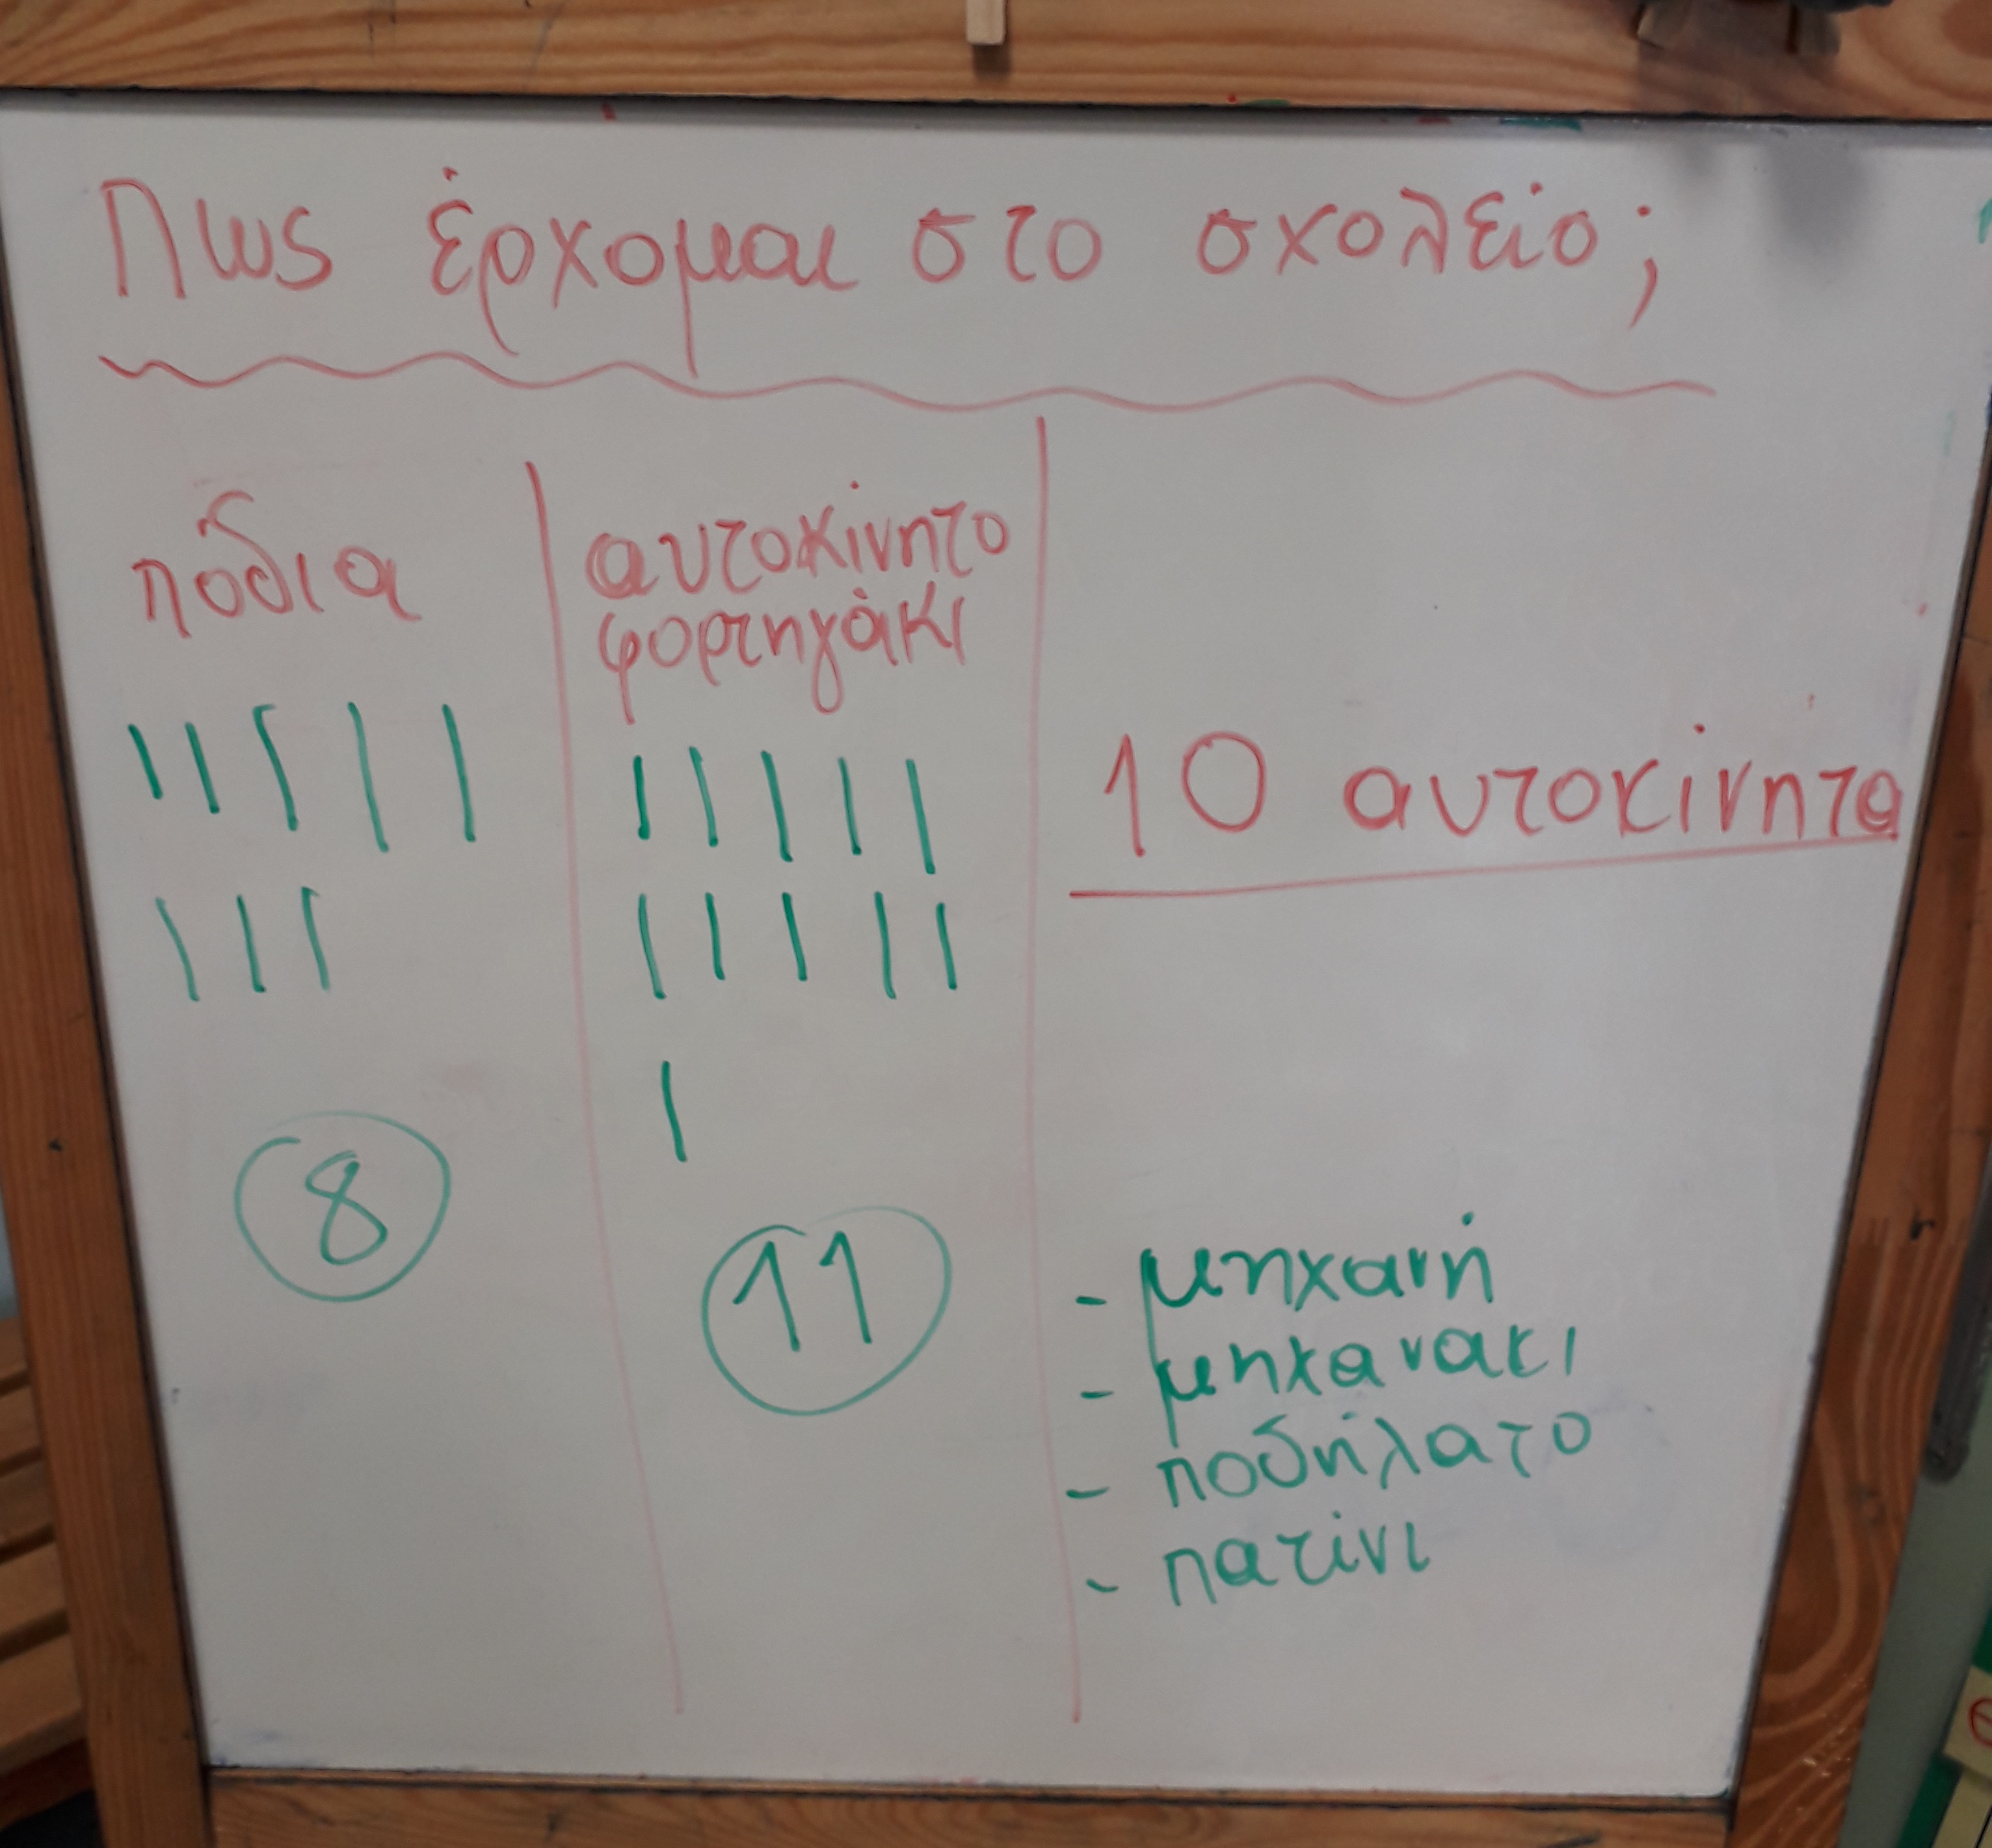 Πως έρχομαι στο σχολείο;
πόδια
αυτοκίνητο
φορτηγάκι
8
11
10 αυτοκίνητα
- μηχανή
- μηχανακι
- ποδήλατο
- πατίνι